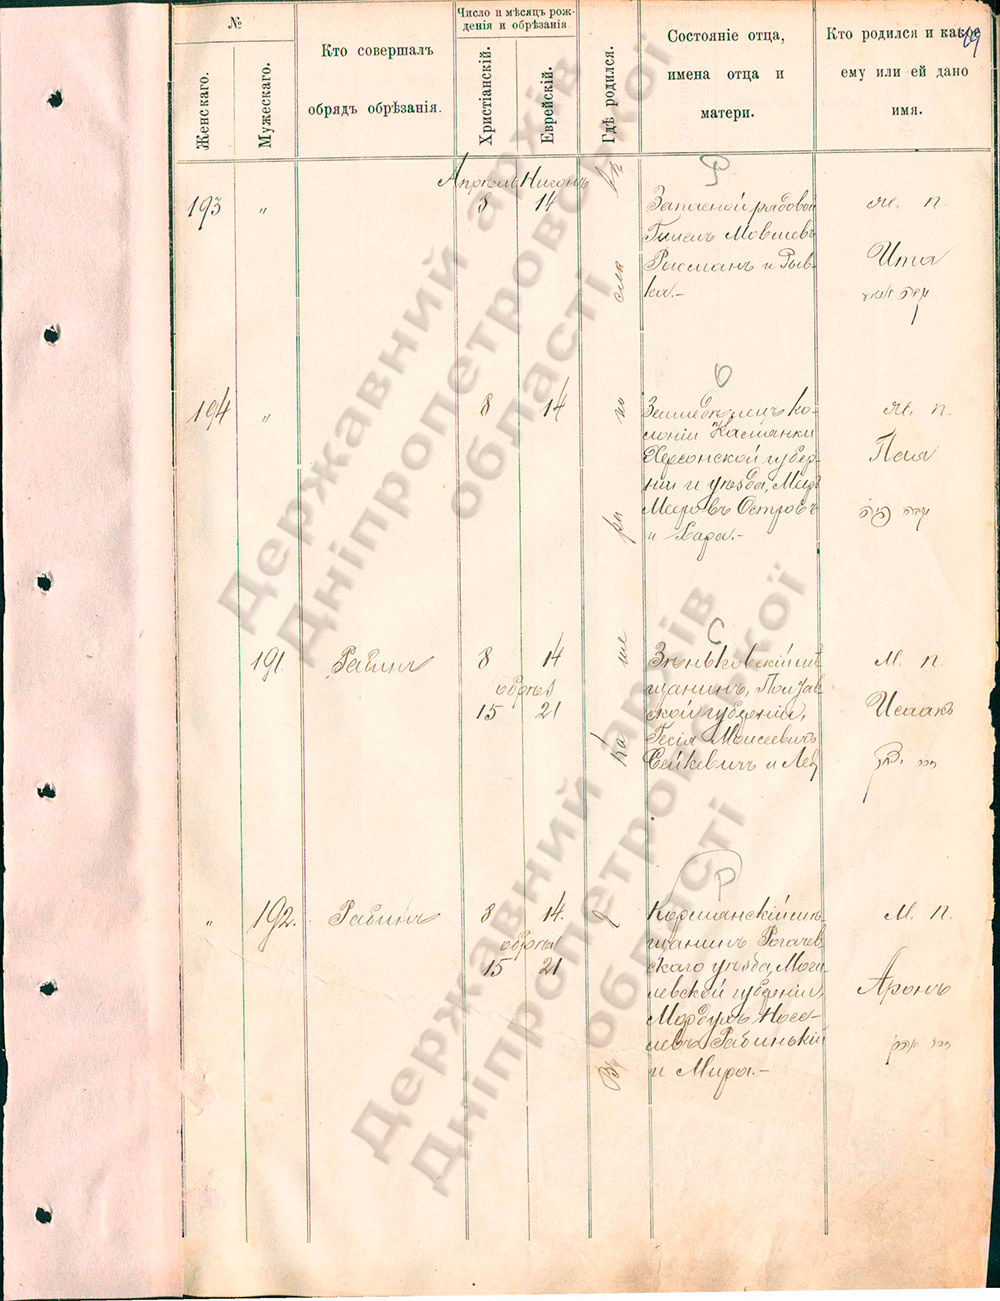 69
№
Женскаго.
Мужескаго.
Кто совершалъ
обрядъ обрѣзанія.
Число и мѣсяцъ рож-
денія и обрѣзанія.
Христіанскій.
Еврейскій.
Гдѣ родился.
Состояніе отца,
имена отца и
матери.
Кто родился и какое
ему или ей дано
имя.
Апрѣль Нисонъ
193 " 8 14
Запасной рядовой
Гилель Мовшевъ
и Рыв-
ка.-
же. п.
Ита
194 " 8 14
Земледѣлецъ ко-
лоніи
Херсонской губер-
ніи и уѣзда, Меер
Мееровъ Островъ
и Хара.-
же. п.
Песя
191. Равинъ 8 14
обрѣз
15 21
Зѣньковскій мѣ
щанинъ, Полтав
ской губерніи,
Моисеевичъ
и
М. п.
Исаакъ
" 192. Равинъ 8 14.
обрѣз
15 21
Кормянскій мѣ-
щанинъ Рогачев
скаго уѣзда, Моги
левской губерніи,
Мордухъ Носе-
левъ Рабинькій
и Мира.-
М. п.
Аронъ
Въ г
ка те ри но сла вѣ
Державний архів
Дніпропетровської
області
Державний архів
Дніпропетровської
області